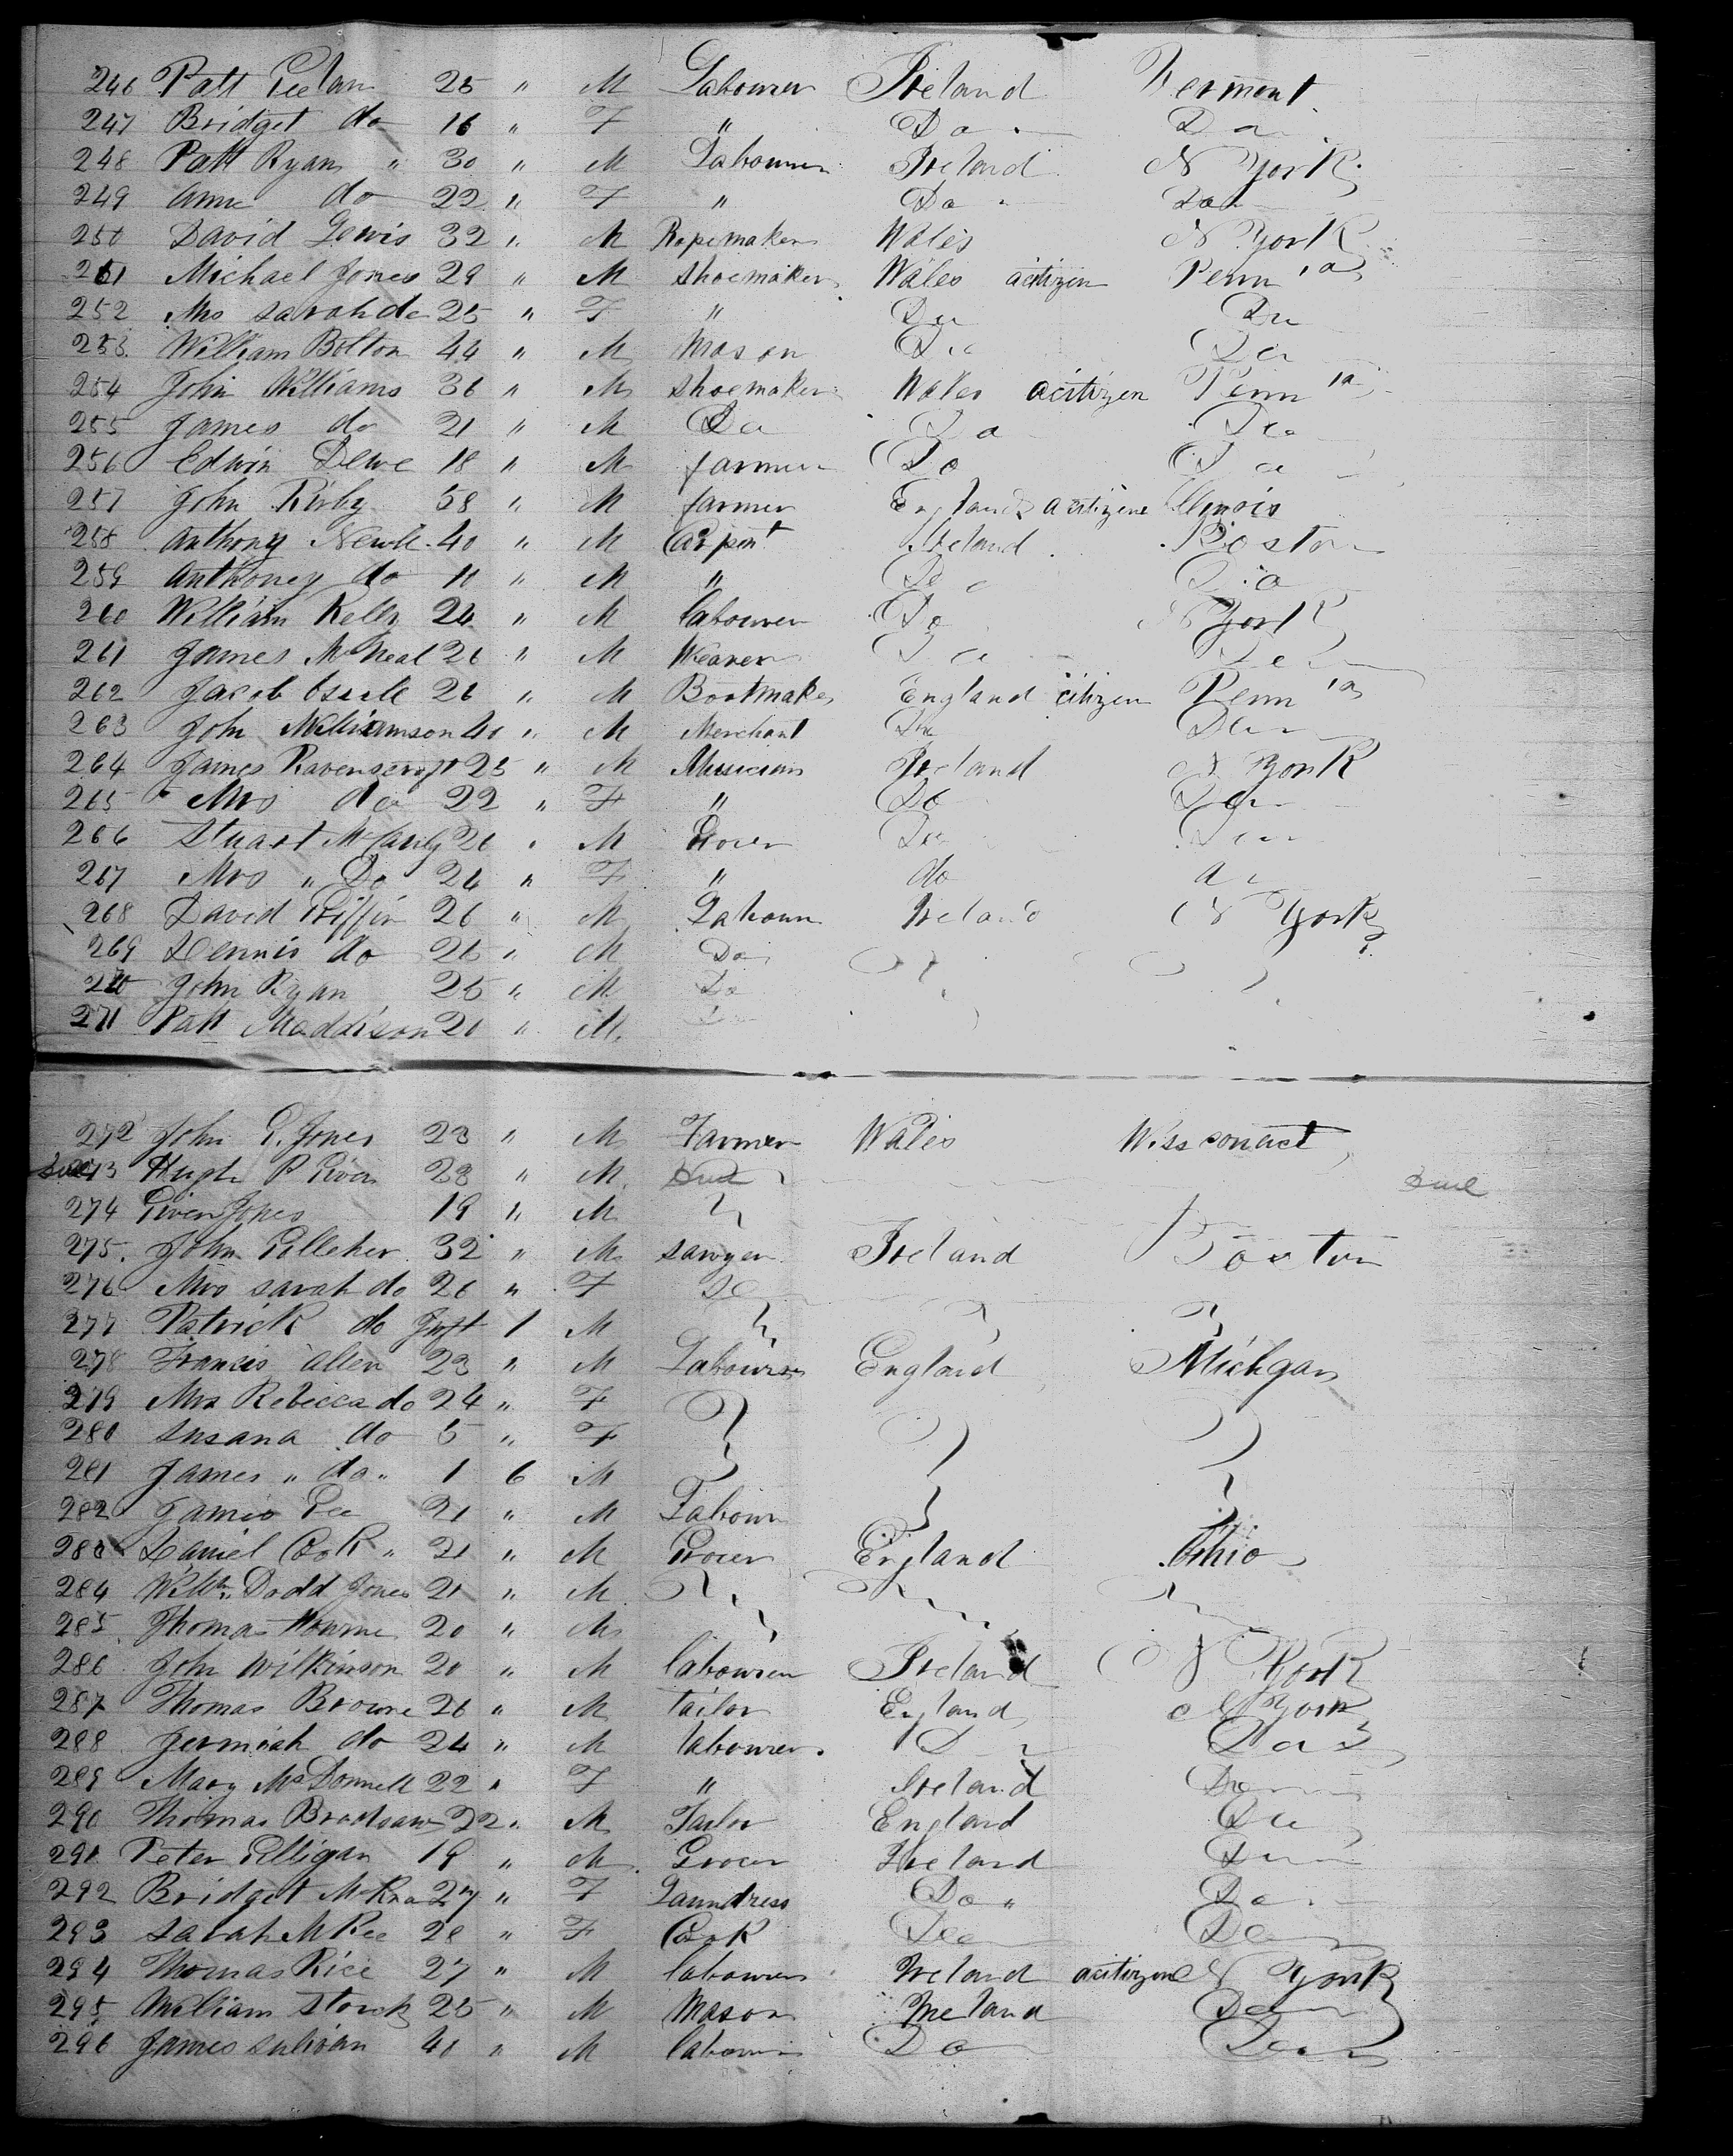 246 Patt 25 " M Labourer Ireland Vermont
247 Bridget do 16 " F " Do Do
248 Patt Ryan " 30 " M Labourer Ireland N York
249 Ann do 22 " F " Do Do
250 David Lewis 32 " M Ropemaker Wales N York
251 Michael Jones 29 " M Shoemaker Wales acitizen Penn ia
252 Mrs sarah do 25 " F " Do Do
253 William Bolton 44 " M Mason Do Do
254 John Williams 36 " M shoemaker Wales acitizen Penn ia
255 James do 21 " M Do Do Do
256 Edwin Dewe 18 " M farmer Do Do
257 John Kirby 58 " M farmer England acitizen Illinois
258 Anthony 40 " M Carpent Ireland Boston
259 Anthoney do 11 " M " Do Do
260 William Kelly 24 " M labourer Do N York
261 James McNeal 26 " M Weaver Do Do
262 Jacob 26 " M Bootmaker England citizen Penn ia
263 John Williamson 40 " M Merchant Do Do
264 James Ravenscroft 25 " M Musician Ireland N York
265 Mrs do 22 " F " Do Do
266 Stuart 26 " M Grocer Do Do
267 Mrs " Do 24 " F " do
268 David Griffin 26 " M Labour Ireland N York
269 Dennis do 26 " M Do
270 John Ryan 25 " M Do
271 Patt Maddison 20 " M
272 John G. Jones 23 " M Farmer Wales
273 Hugh P 28 " M
274 Jones 19 " M
275 John Gelleher 32 " M sawyer Ireland Boston
276 Mrs sarah do 26 " F Do
277 Patrick do Inft 1 M
278 Francis Allen 23 " M Labourer England Michgan
279 Mrs Rebecca do 24 " F
280 Susana do 5 " F
281 James " do " 1 6 M
282 James Gee 21 " M Labour
283 Daniel Cook " 21 " M Grocer England Ohio
284 Willm Dodd Jones 21 " M
285 Thomas Hourne 20 " M
286 John Wilkinson 20 " M labourer Ireland N York
287 Thomas Browne 26 " M tailor England N York
288 Jermiah do 24 " M labourer Do Do
289 Mary McDonnell 22 " F " Ireland Do
290 Thomas Bradsaw 22 " M Tailor England Do
291 Peter Gilligan 19 " M Grocer Ireland Do
292 Bridget McKna 27 " F Laundress Do " Do
293 Sarah McKee 28 " F Cook Do Do
294 Thomas Rice 27 " M labourer Ireland acitizen N York
295 William 25 " M Mason Ireland Do
296 James sulivan 40 " M labourer Do Do